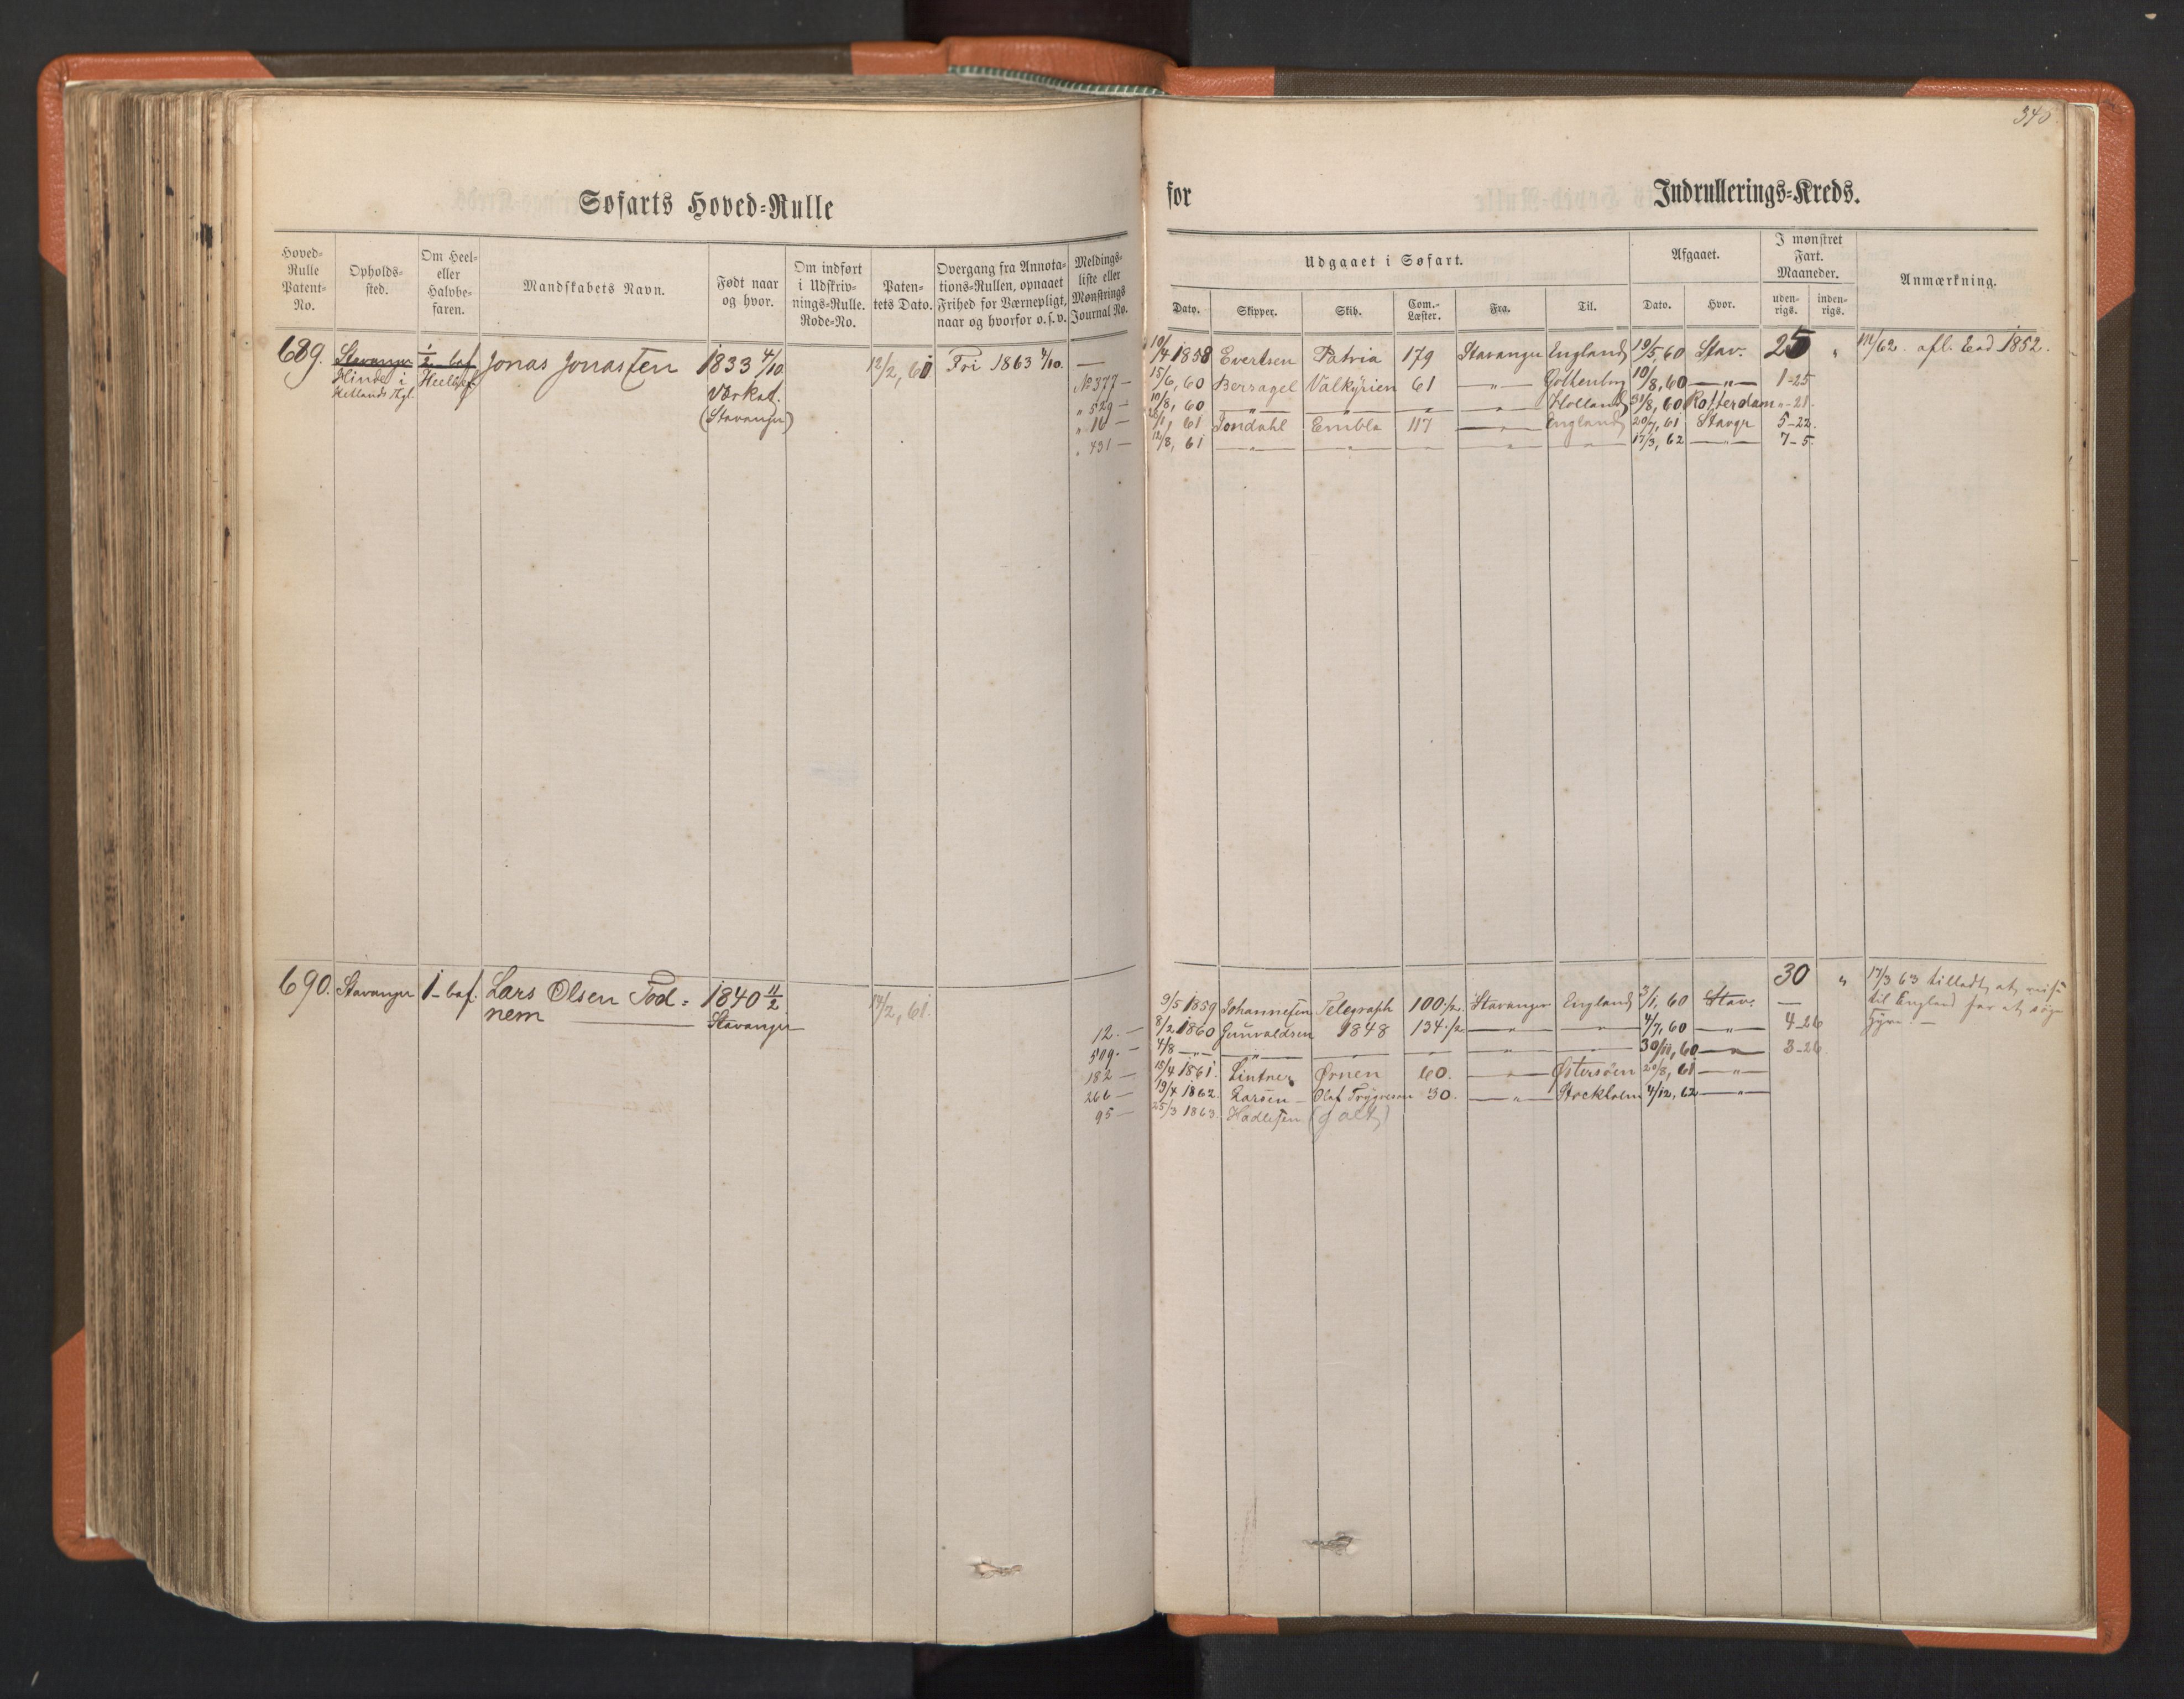 340
Søfarts Hoved=Rulle
for Indrullerings=Kreds.
Hoved=Rulle Patent=No.
Opholds=sted.
Om Heel= eller Halvbe=faren.
Mandskabets Navn.
Født naar og hvor.
Om indført i Udskriv=nings=Rulle. Rode=No.
Paten=tets Dato.
Overgang fra Annota=tions=Rullen, opnaaet Frihed for Værnepligt, naar og hvorfor o. s. v.
Meldings=liste eller Mønstrings Journal No.
Udgaaet i Søfart.
Dato. Skipper. Skib. Com.=Læster. Fra. Til.
Afgaaet.
Dato. Hvor.
I mønstret Fart. Maaneder.
uden=rigs. inden=rigs.
Anmærkning.
689. Stavanger 1/2 bef. Jonas Jonassen 1833 4/10 12/2, 61 Fri 1863 4/10. —
Hinde i Heelbf
Hetlands Tgl. Værket.
(Stavanger)
10/4 1858 Evertsen Patria 179 Stavanger England 19/5, 60 Stav. 25 " /62. afl. Eed 1852.
No 377 — 15/6, 60 Bersagel Valkyrien 61 —"— Gothenborg 10/8, 60 —"— 1-25
" 529 — 10/8, 60 —"— —"— —"— —"— Holland 31/8, 60 Rotterdam "-21.
" 16 — 28/1, 61 Jondahl Embla 117 —"— England 20/7, 61 Stavgr 5-22.
" 431 — 12/8, 61 —"— —"— —"— —"— —"— 17/3, 62 —"— 7-5.
690. Stavanger 1-bef. Lars Olsen Tod= 1840 11/2 14/2, 61.
nem Stavanger
30 " 17/3 63 tilladt at reise
til England for at søge
Hyre. —
9/5 1859 Johannesen Telegraph 100 1/2. Stavanger England 3/1, 60 Stav. —
12. — 8/2 1860 Gunvaldsen 1848 134 1/2 —"— —"— 4/7, 60 —"— 4-26
509. — 4/8 —"— —"— —"— —"— —"— —"— 30/11, 60 —"— 3-26.
182 — 15/4 1861. Lintner Ørnen 60. —"— Østersøen 20/8, 61 —"—
266 — 19/4 1862. Larsen — Olaf Trygvesen 30. —"— Stockholm 4/12, 62 —"—
95 — 25/3 1863. Hadlesen (galt)